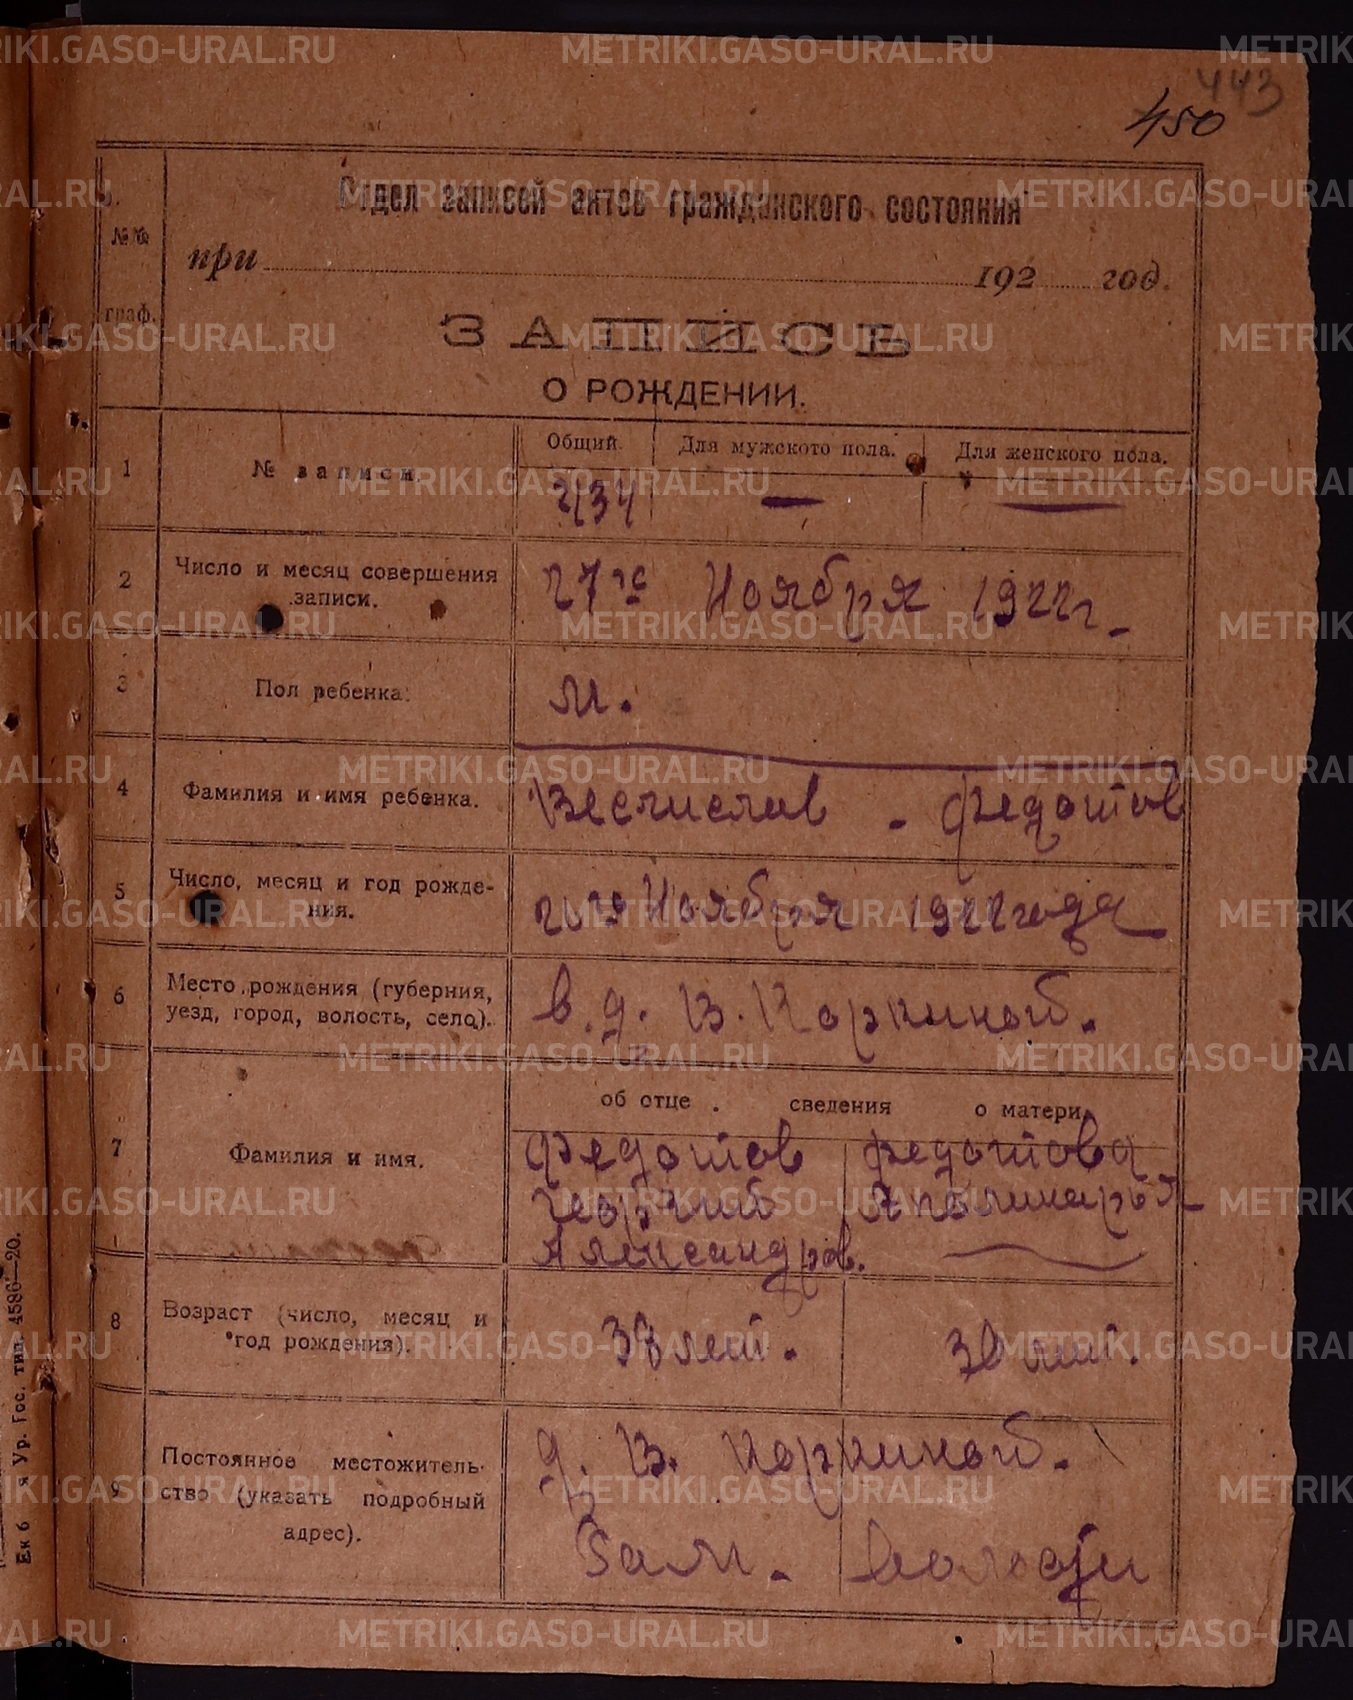 443
450
№№
граф.
Отдел записей актов гражданского состояния
при 192 год.
ЗАПИСЬ
О РОЖДЕНИИ.
1
№ записи.
Общий.
Для мужского пола.
Для женского пола.
2434
—
—
2
Число и месяц совершения
записи.
27го Ноября 1922 г.
3
Пол ребенка.
М.
4
Фамилия и имя ребенка.
- Федотов
5
Число, месяц и год рожде-
ния.
20го Ноября 1922 года
6
Место рождения (губерния,
уезд, город, волость, село).
в д. В. Коркиной.
об отце сведения о матери
7
Фамилия и имя.
Федотов
Георгий
Александров.
Федотова
Аполинария
8
Возраст (число, месяц и
год рождения).
38 лет.
30 лет.
9
Постоянное местожитель-
ство (указать подробный
адрес).
д. В. Коркиной.
волости
Ек б я Ур. Гос. тип. 4586—20.
METRIKI.GASO-URAL.RU